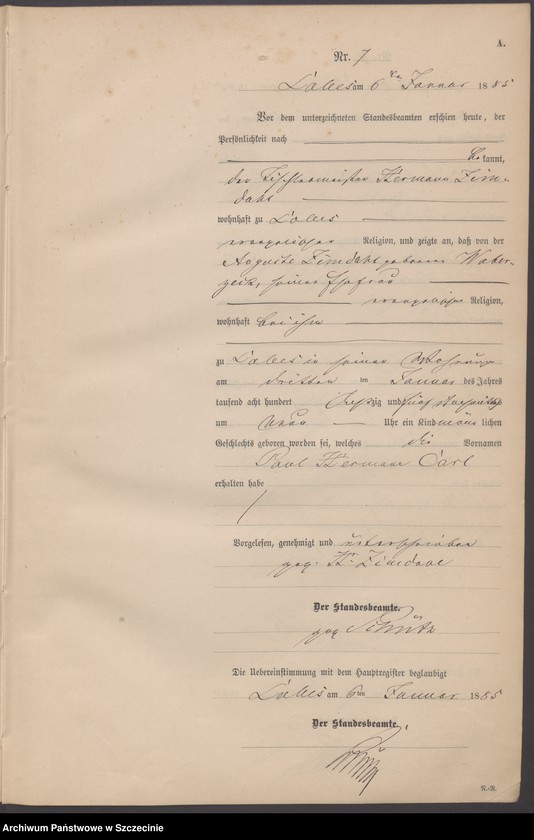 A.
Nr. 7
Labes am 6ten Januar 1885
Vor dem unterzeichneten Standesbeamten erschien heute, der
Persönlichkeit nach
be kannt,
der Tischlermeister Hermann Zim-
dahl
wohnhaft zu Labes
evangelischer Religion, und zeigte an, daß von der
Auguste Zimdahl geborenen
seiner Ehefrau
evangelischer Religion,
wohnhaft bei ihm
zu Labes in seiner Wohnung
am dritten ten Januar des Jahres
tausend acht hundert achtzig und fünf Nachmittags
um neun Uhr ein Kind männ lichen
Geschlechts geboren worden sei, welches die Vornamen
Paul Hermann Carl
erhalten habe
Vorgelesen, genehmigt und unterschrieben
gez. Zimdahl
Der Standesbeamte.
gez Schütz
Die Uebereinstimmung mit dem Hauptregister beglaubigt
Labes am 6ten Januar 1885
Der Standesbeamte.
Schütz
N.-R.
Archiwum Państwowe w Szczecinie